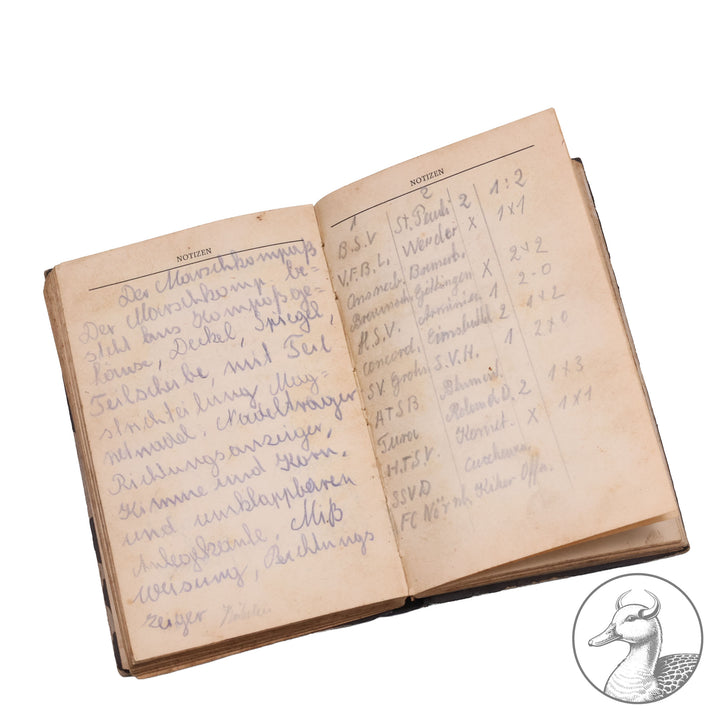 NOTIZEN
Der Marschkompaß
Der Marschkomp. be-
steht aus Kompaßge-
häuse, Deckel, Spiegel,
Teilscheibe, mit Teil
strichteilung Mag-
netnadel, Nadelträger
Richtungsanzeiger,
Kimme und Korn,
und umklappbaren
Anlegkante, Miß
weisung, Richtungs
zeiger
NOTIZEN
1 2
B.S.V St. Pauli 2 1:2
V.F.B.L. Werder X 1x1
Bremerh.
Göttingen X 2x2
H.S.V. Arminia 1 2-0
Concord. Eimsbüttel 2 1x2
SV. S.V.H. 1 2x0
ATSB Blument.
2 1x3
H.T.S.V. X 1x1
SSVD Cuxhaven
FC